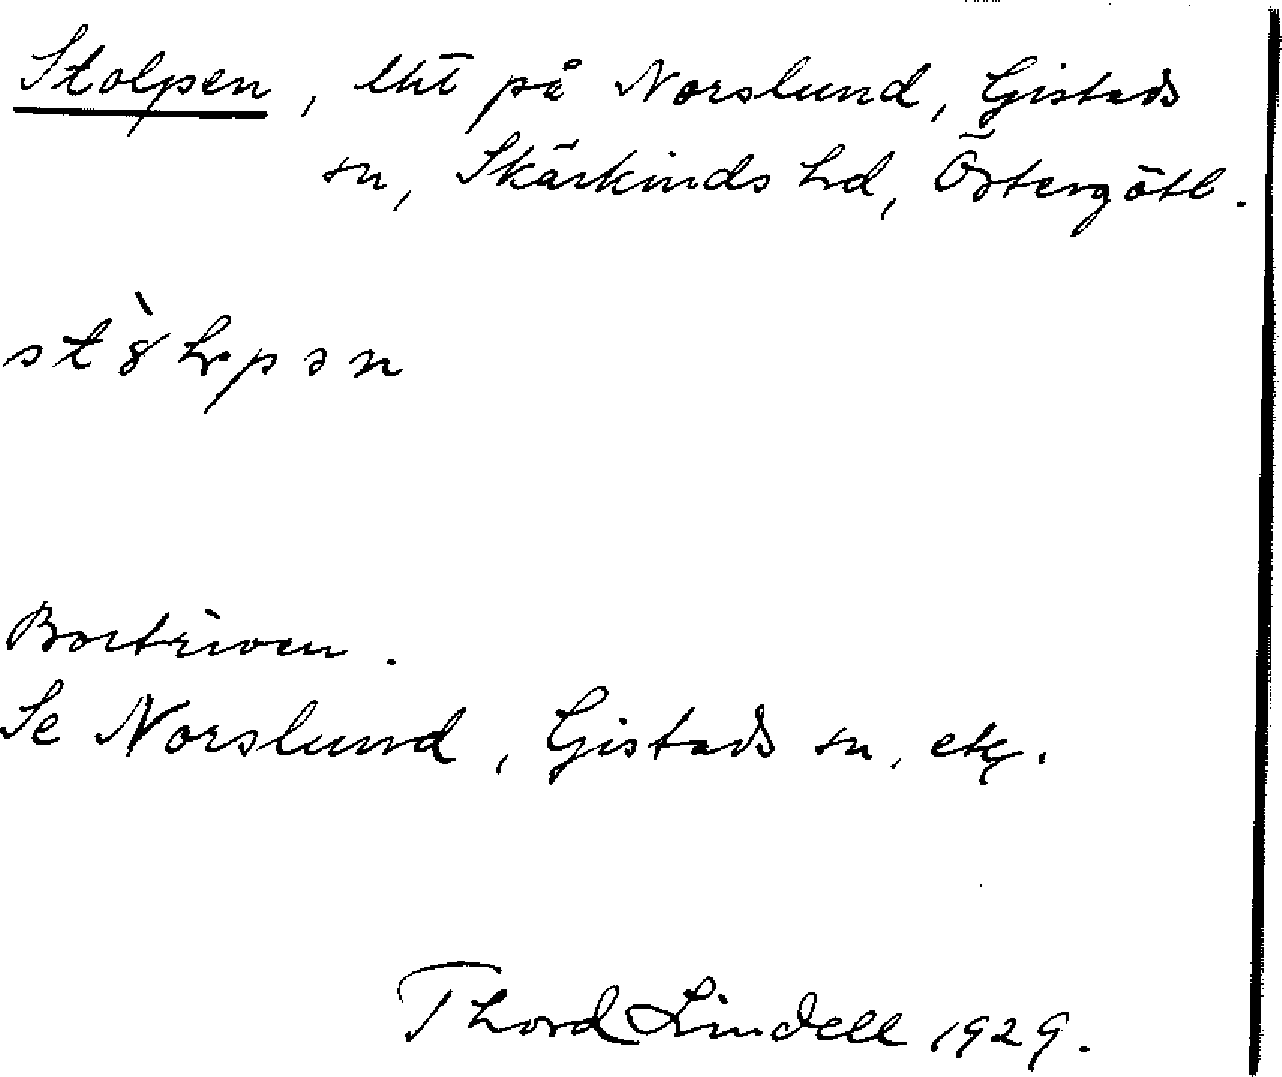 Stolpen, lht på Norslund, Gistads
sn, Skärkinds hd, Östergötl.
Bortriven.
Se Norslund, Gistads sn, etc.
Thord Lindell 1929.